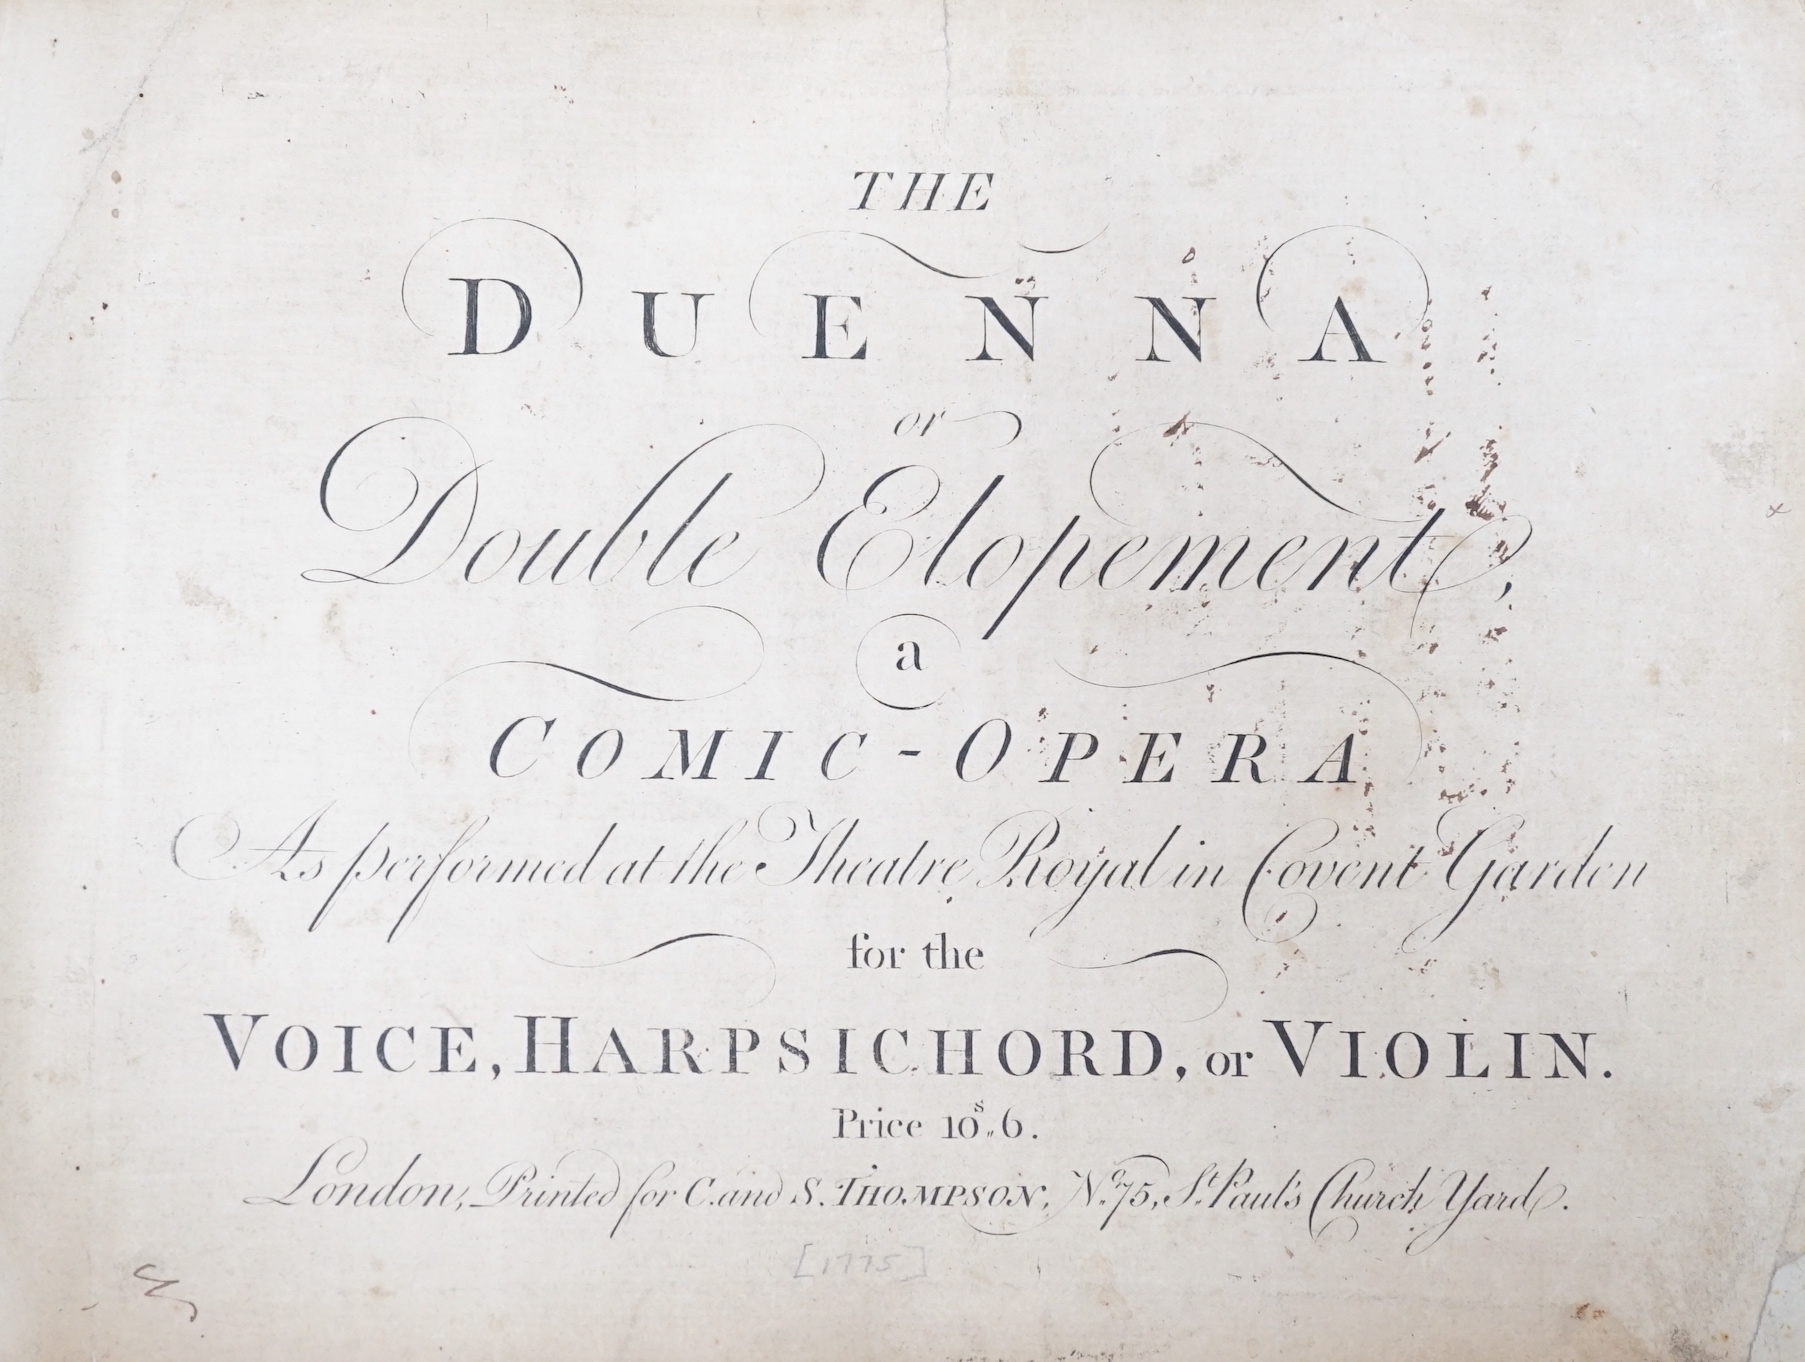 THE
DUENNA
or
Double Elopement,
a
COMIC-OPERA
As performed at the Theatre Royal in Covent Garden
for the
VOICE, HARPSICHORD, or VIOLIN.
Price 10s,,6.
London, Printed for C. and S. THOMPSON, No. 75, St. Paul's Church Yard.
[1775]